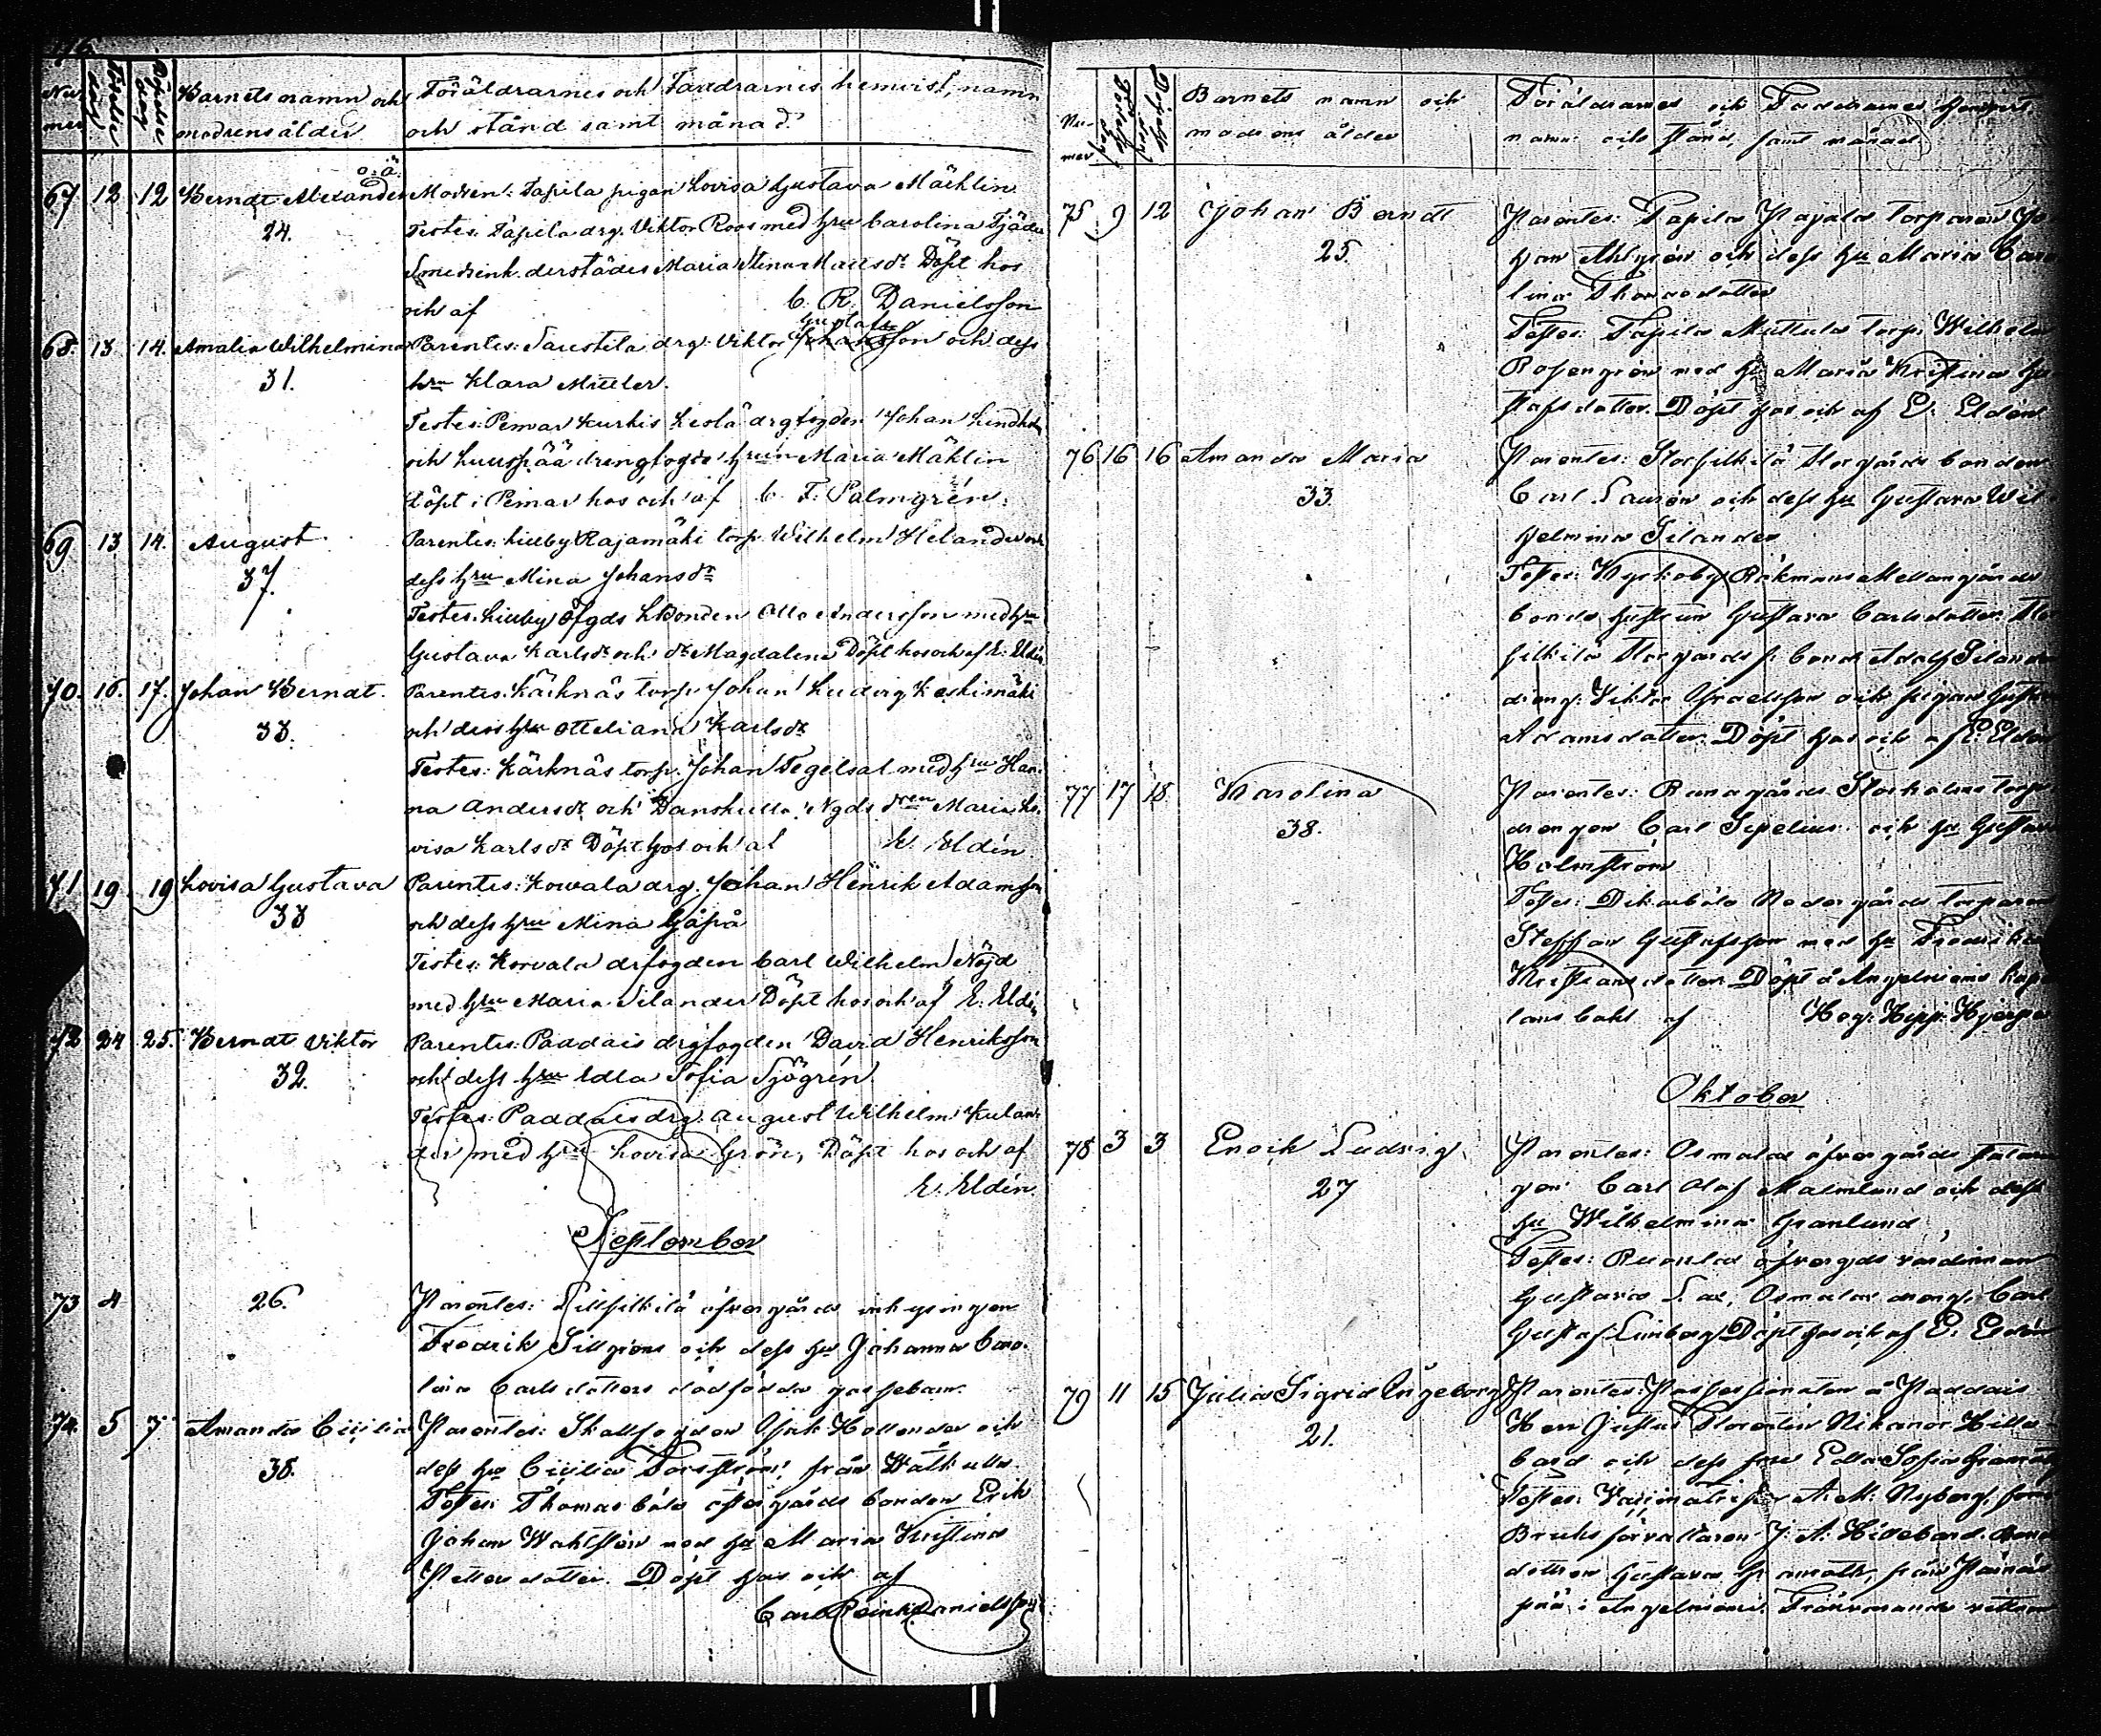 116
Nummer
Födelse dag
Döpelse dag
Barnets namn och
modrens ålder
Föräldrarnes och Faddrarnes hemvist, namn
och stånd samt månad.
67 12 12 Berndt Alexander o.ä. Modren: Tapila pigan Lovisa Gustava Mäcklin
24. Testes: Tapila drg. Viktor Roos med hru Carolina Tjäder
Smedenk. derstädes Maria Stina Matsdr Döpt hos
och af C. R. Danielsson
68. 13. 14. Amalia Wilhelmina Parentes: Saustila drg. Viktor Johansson Gustafs och dess
31. hru Klara Müller.
Testes: Pemar Kurkis Keslä drgfogden Johan Lindholm
och Luuspää drengfogde hrun Maria Mäklin
Döpt i Pemar hos och af C. F. Palmgrén.
69 13 14. August Parentes: Lilleby Rajamäki torp. Wilhelm Helander och
37. dess hru Mina Johansdr
Testes. Lilleby Öfgds Lbonden Otto Andersson med hru
Gustava Karlsdr och dr Magdalena Döpt hos och af E. Eldén
70. 16. 17. Johan Berndt. Parentes. Kärknäs torp. Johan Ludvig Keskimäki
33. och dess hru Otteliana Karlsdr
Testes: Kärknäs torp. Johan Tegelsal med hru Han-
na Andersdr och Danskulla Ngds dren Maria Lo-
visa Karlsdr Döpt hos och af E. Eldén.
71 19. 19 Lovisa Gustava Parentes: Kowala drg. Johan Henrik Adamsson
33 och dess hru Mina Gåspå
Testes: Korvala drfogden Carl Wilhelm Nöjd
med hru Maria Silander Döpt hos och af E. Eldén
72 24 25. Berndt Viktor Parentes: Paddais drgfogden David Henriksson
32. och dess hru Edla Sofia Sjögrén.
Testes: Paddais drg. August Wilhelm Kulan-
der med hru Lovisa Grön, Döpt hos och af
E. Eldén.
September
73 4 26. Parentes: Lillfilkilä öfvergårds inhysingen
Fredrik Sillgröns och dess hu Johanna Caro-
lina Carlsdotters dödfödda gossebarn.
74. 5 7 Amanda Cicilia Parentes: Skallfogden Isak Hollender och
38. dess hu Cicilia Forsström, från Wåtkulla.
Testes: Thomasböle öfvergårds bonden Erik
Johan Wahlstén med hu Maria Kristina
Pettersdotter. Döpt hos och af
Carl Reinh. Danielsson
Nummer
Födelse dag
Döpelse dag
Barnets namn och
modrens ålder
Föräldrarnes och Faddrarnes hemvist,
namn och stånd, samt månad
75 9 12 Johan Berndt Parentes: Tapila Pajala torparen Jo-
25. han Ahlgrén och dess hu Maria Caro-
lina Thomasdotter
Testes: Tapila Muttula torp. Wilhelm
Rosengrén med hu Maria Kristina Gu-
stafsdotter. Döpt hos och af E. Eldén
76 16 16 Amanda Maria Parentes: Storfilkilä Storgårds bonden
33. Carl Laurén och dess hu Gustava Wil-
helmina Silander
Testes: Kyrkoby Räkmans Mellangårds
bonde hustrun Gustava Carlsdotter. Stor-
filkilä Storgårds f. bond. Adolf Silander
dreng. Viktor Israelsson och pigan Gustava
Adamsdotter. Döpt hos och af E. Eldén
77 17 18 Karolina Parentes: Runagårds Storholms torp
38. drengen Carl Sipelius och hu Gustava
Holmström
Testes: Dikarböle Nedergårds torparen
Steffan Gustafsson med hu Fredrika
Kristiansdotter. Döpt å Angelniemi kapel-
lans bohl af Hog. Hipp. Hjerpe
Oktober
78 3 3 Enoik Ludvig Parentes: Osmala öfvergårds
27 Carl Olof Malmlund och dess
hu Wilhelmina Granlund
Testes: Ruonla öfvergds värdinnan
Gustava L, Osmalan dreng. Carl
Gustaf Limberg. Döpt hos och af E. Eldén
79 11 15 Julia Sigrid Ingeborg Parentes: Possessionaten å Paddais
21. Herr Justus Florentin Nikanor Hilde-
bard och dess fru Edla Sofia Gramoth
Testes: A. M. Nyberg,
Bruksförvaltaren J. A. Hildebard.
dottren Gustava Gramoth, från
i Angelniemi.